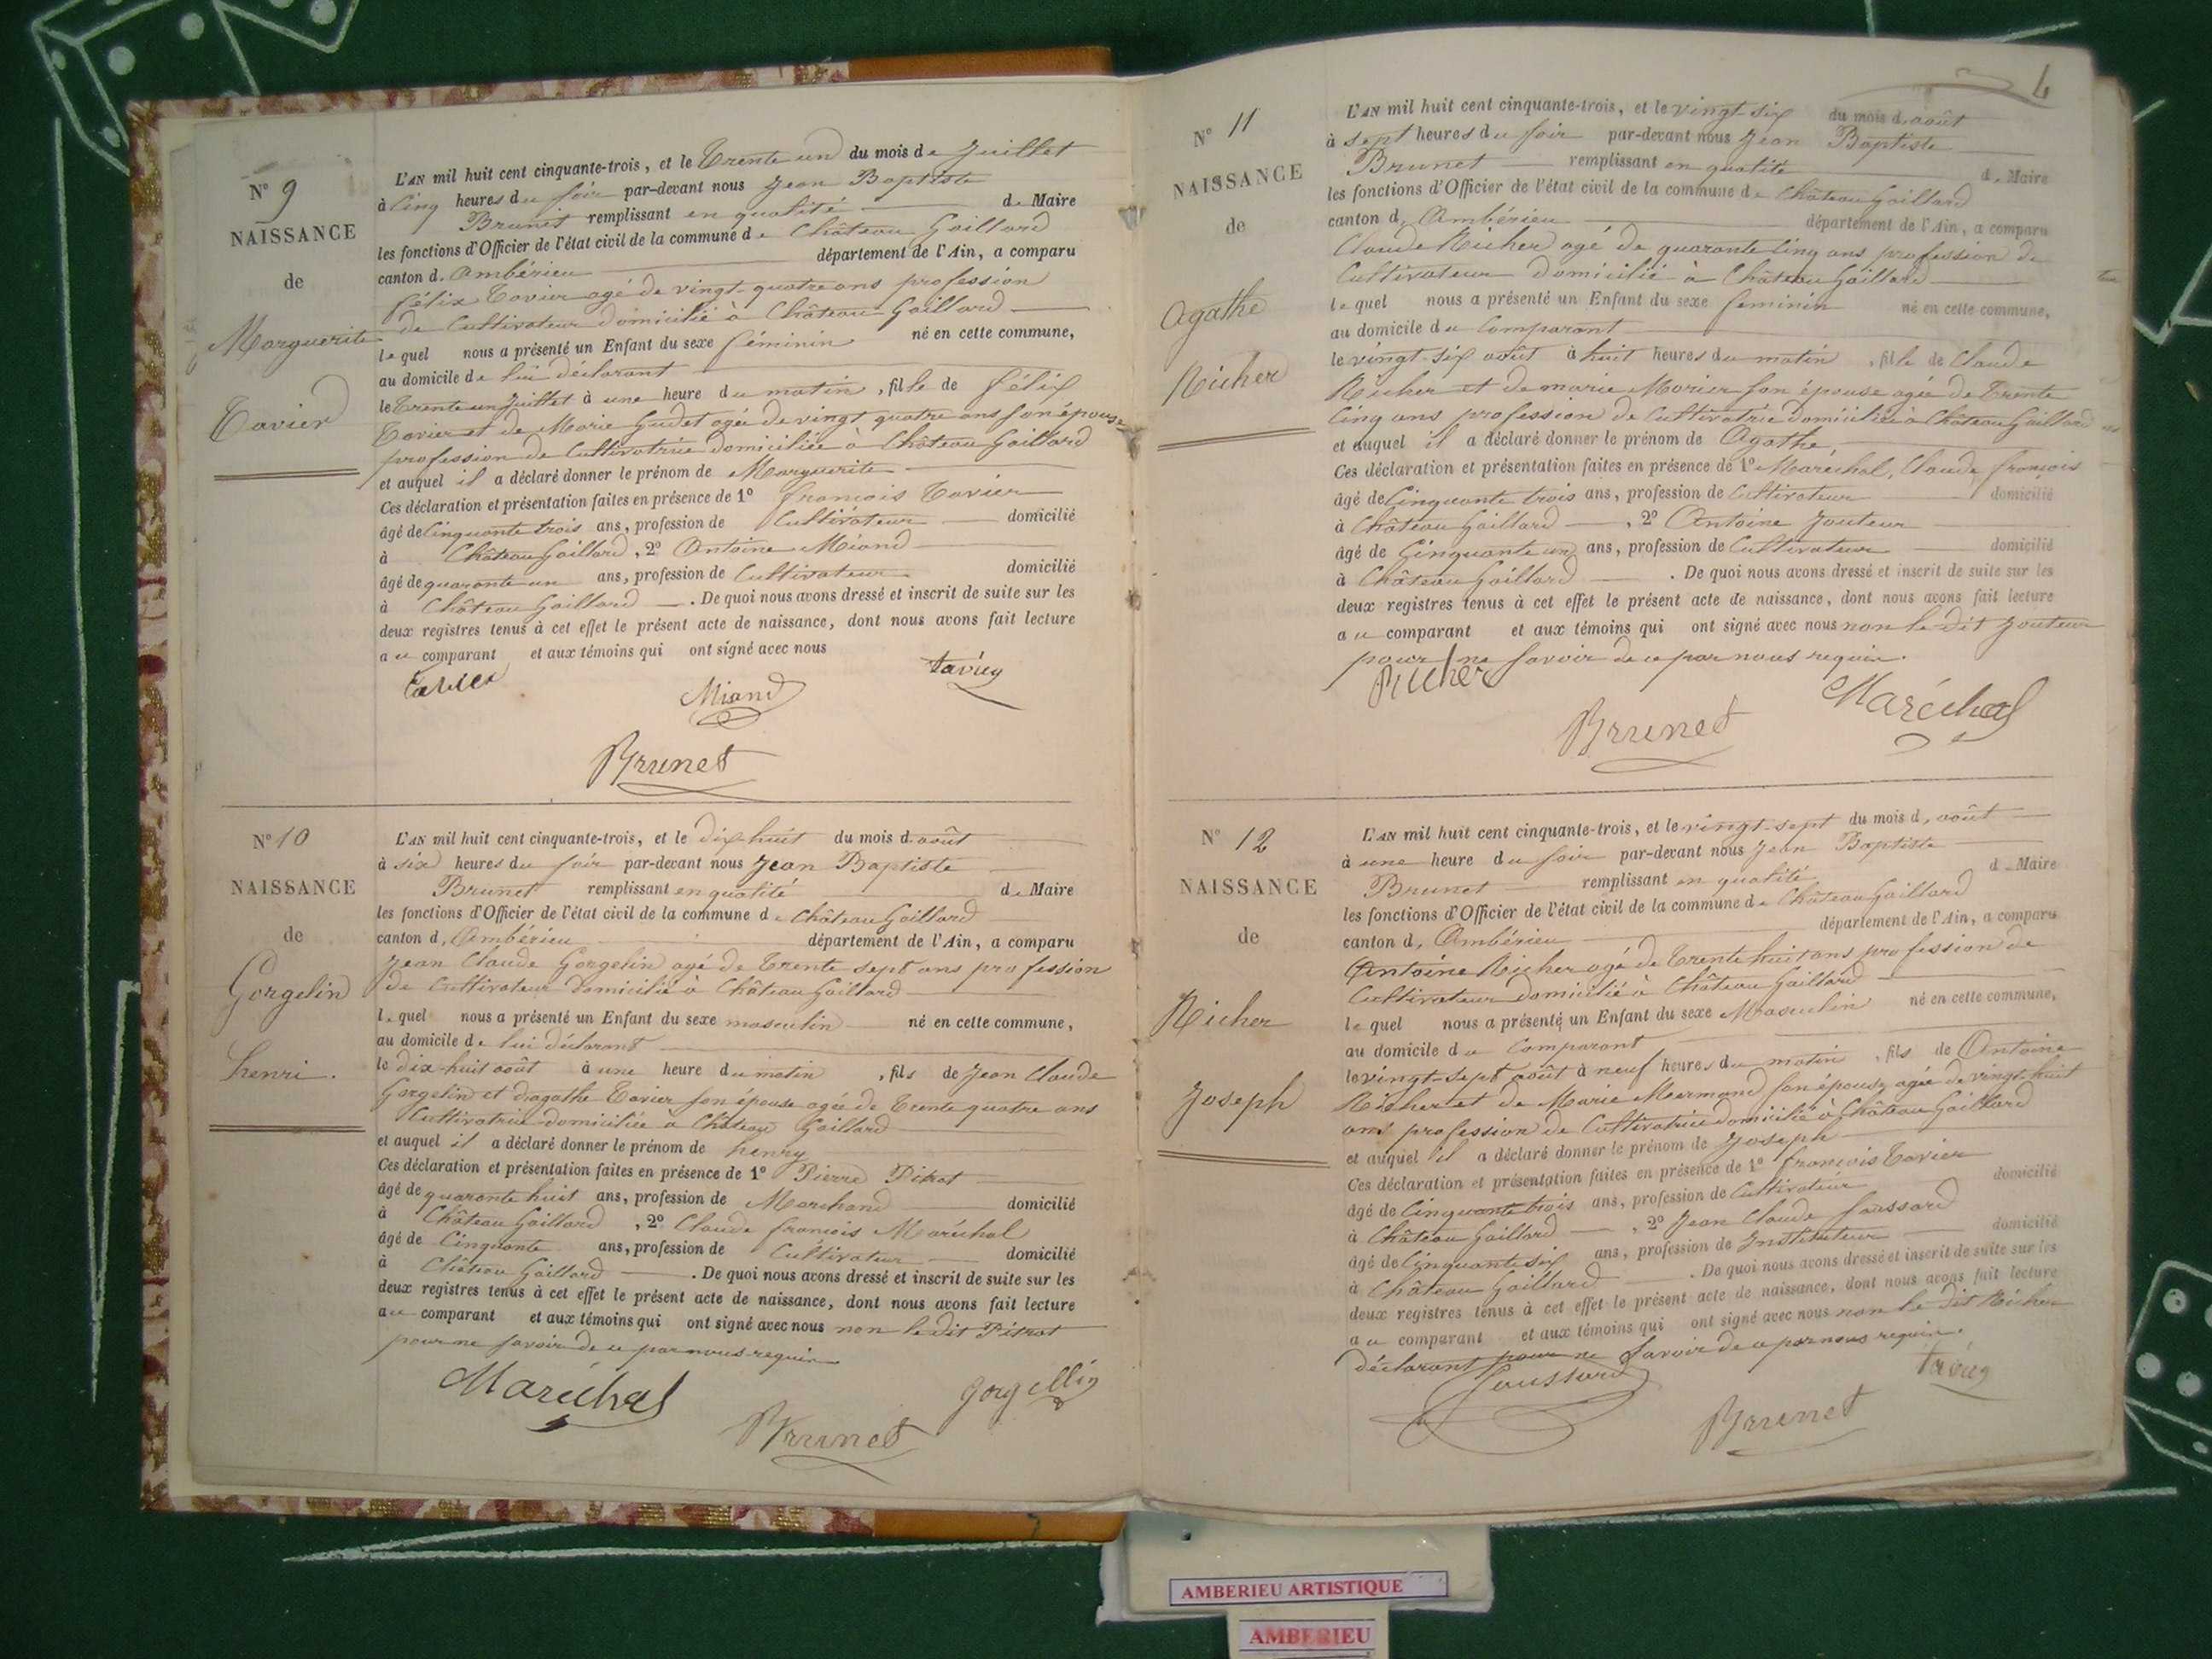 N° 9
NAISSANCE
de
Marguerite
Tavier
L'AN mil huit cent cinquante-trois, et le trente un du mois de Juillet
à cinq heures du soir par-devant nous Jean Baptiste
Brunet remplissant en qualité de Maire
les fonctions d'Officier de l'état civil de la commune de Château Gaillard
canton d. Ambérieu département de l'Ain, a comparu
félix Tavier agé de vingt-quatre ans profession
de Cultivateur domicilié à Château Gaillard
lequel nous a présenté un Enfant du sexe féminin né en cette commune,
au domicile de lui déclarant
le trente un Juillet à une heure du matin, fille de félix
Tavier et de Marie Gudet agée de vingt quatre ans son épouse
profession de Cultivatrice domiciliée à Château Gaillard
et auquel il a déclaré donner le prénom de Marguerite
Ces déclaration et présentation faites en présence de 1° françois Tavier
âgé de Cinquante trois ans, profession de Cultivateur domicilié
à Château Gaillard, 2° Antoine Miand
âgé de quarante un ans, profession de Cultivateur domicilié
à Château Gaillard. De quoi nous avons dressé et inscrit de suite sur les
deux registres tenus à cet effet le présent acte de naissance, dont nous avons fait lecture
au comparant et aux témoins qui ont signé avec nous
Miand
Brunet
N° 10
NAISSANCE
de
Gorgelin
henri.
L'AN mil huit cent cinquante-trois, et le dix huit du mois d'août
à six heures du soir par-devant nous Jean Baptiste
Brunet remplissant en qualité de Maire
les fonctions d'Officier de l'état civil de la commune de Château Gaillard
canton d. Ambérieu département de l'Ain, a comparu
Jean Claude Gorgelin agé de trente sept ans profession
de Cultivateur domicilié à Château Gaillard
lequel nous a présenté un Enfant du sexe masculin né en cette commune,
au domicile de lui déclarant
le dix-huit août à une heure du matin, fils de Jean Claude
Gorgelin et d'agathe Tavier son épouse agée de trente quatre ans
Cultivatrice domiciliée à Château Gaillard
et auquel il a déclaré donner le prénom de henry
Ces déclaration et présentation faites en présence de 1° Pierre Pitrat
âgé de quarante huit ans, profession de Marchand domicilié
à Château Gaillard, 2° Claude françois Maréchal
âgé de Cinquante ans, profession de Cultivateur domicilié
à Château Gaillard. De quoi nous avons dressé et inscrit de suite sur les
deux registres tenus à cet effet le présent acte de naissance, dont nous avons fait lecture
au comparant et aux témoins qui ont signé avec nous non le dit Pitrat
pour ne savoir de ce par nous requis
Maréchal
Gorgellin
Brunet
N° 11
NAISSANCE
de
Agathe
Richer
L'AN mil huit cent cinquante-trois, et le vingt-six du mois d'août
à sept heures du soir par-devant nous Jean Baptiste
Brunet remplissant en qualité de Maire
les fonctions d'Officier de l'état civil de la commune de Château Gaillard
canton d. Ambérieu département de l'Ain, a comparu
Claude Richer agé de quarante Cinq ans profession de
Cultivateur domicilié à Château Gaillard
lequel nous a présenté un Enfant du sexe feminin né en cette commune,
au domicile du Comparant
le vingt-six août à huit heures du matin, fille de Claude
Richer et de marie Morier son épouse agée de trente
Cinq ans profession de Cultivatrice domiciliée à Château Gaillard
et auquel il a déclaré donner le prénom de Agathe
Ces déclaration et présentation faites en présence de 1° Maréchal, Claude françois
âgé de Cinquante trois ans, profession de Cultivateur domicilié
à Château Gaillard, 2° Antoine Jouteur
âgé de Cinquante un ans, profession de Cultivateur domicilié
à Château Gaillard. De quoi nous avons dressé et inscrit de suite sur les
deux registres tenus à cet effet le présent acte de naissance, dont nous avons fait lecture
au comparant et aux témoins qui ont signé avec nous non le dit Jouteur
pour ne savoir de ce par nous requis.
Richer
Maréchal
Brunet
N° 12
NAISSANCE
de
Richer
Joseph
L'AN mil huit cent cinquante-trois, et le vingt-sept du mois d'août
à une heure du soir par-devant nous Jean Baptiste
Brunet remplissant en qualité de Maire
les fonctions d'Officier de l'état civil de la commune de Château Gaillard
canton d. Ambérieu département de l'Ain, a comparu
Antoine Richer agé de trente huit ans profession de
Cultivateur domicilié à Château Gaillard
lequel nous a présenté un Enfant du sexe Masculin né en cette commune,
au domicile du Comparant
le vingt-sept août à neuf heures du matin, fils de Antoine
Richer et de Marie Mermand son épouse agée de vingt-huit
ans profession de Cultivatrice domicilié à Château Gaillard
et auquel il a déclaré donner le prénom de Joseph
Ces déclaration et présentation faites en présence de 1° françois Tavier
âgé de Cinquante trois ans, profession de Cultivateur domicilié
à Château Gaillard, 2° Jean Claude Joussard
âgé de Cinquante six ans, profession de Instituteur domicilié
à Château Gaillard. De quoi nous avons dressé et inscrit de suite sur les
deux registres tenus à cet effet le présent acte de naissance, dont nous avons fait lecture
au comparant et aux témoins qui ont signé avec nous non le dit Richer
déclarant pour ne savoir de ce par nous requis.
Joussard
Brunet
AMBERIEU ARTISTIQUE
AMBERIEU